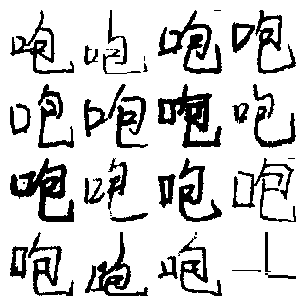 咆咆咆咆
咆咆咆咆
咆咆咆咆
咆咆咆